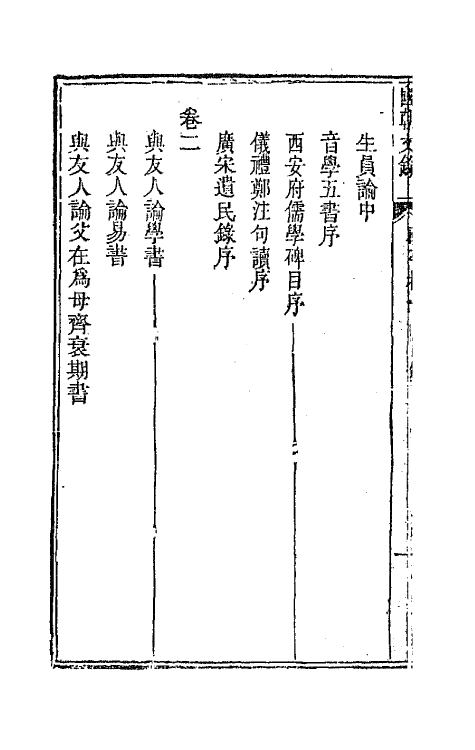 生員論中
音學五書序
西安府儒學碑目序
儀禮鄭注句讀序
廣宋遺民錄序
卷二
與友人論學書
與友人論易書
與友人論父在爲母齊衰期書